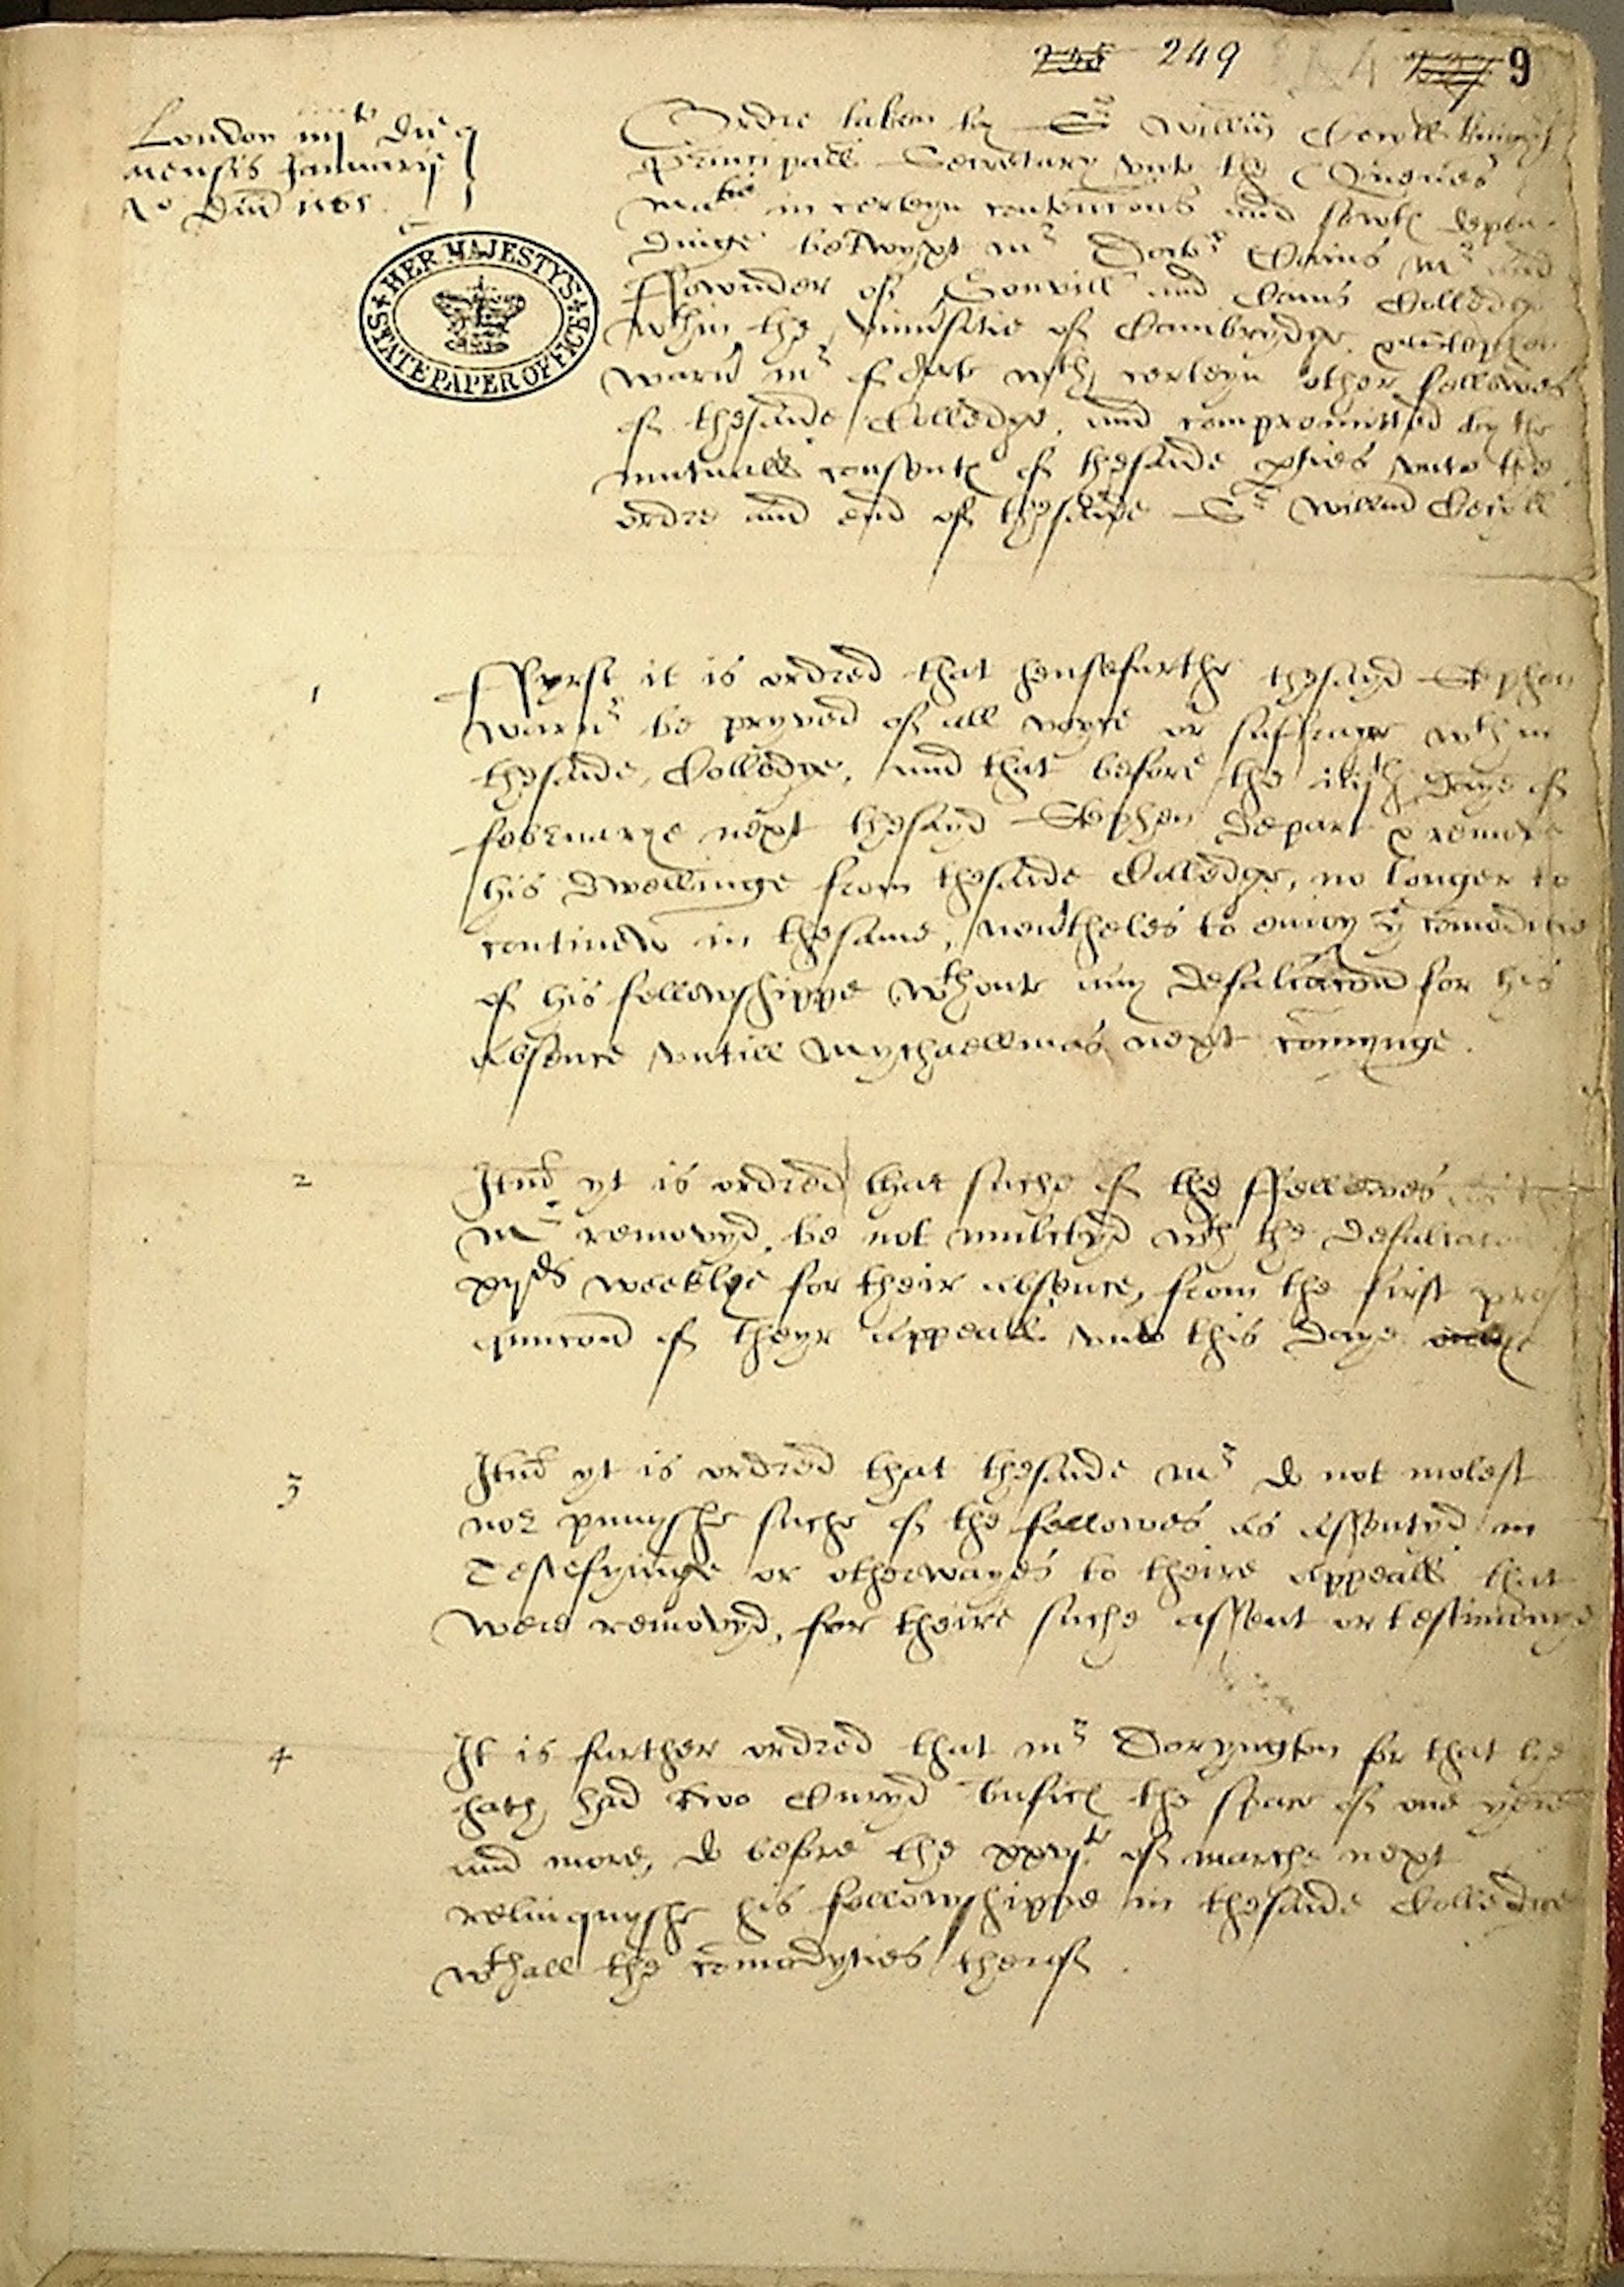 249 9
London iiijto die
mensis Januarij
Ao Dni 1565
HER MAJESTY'S
STATE PAPER OFFICE
Ordre taken by Sr Willm Cecyll knight
Principall Secretary unto the Quenes
Matie in certeyn contencons and sewts depen-
dinge betwyxt Mr Doctr Caius Mr and
ffownder of Gonvill and Caius Colledge
wthin the Universitie of Cambrydge, Stephen
warnr Mr Clerk wth certeyn other fellowes
of thesaide Colledge, and compromitted by the
mutuall consents of thesaide pties unto the
ordre and end of thesaide Sr Willm Cecyll
1
ffyrst it is ordred that hensefurthe thesayd Stephen
warnr be pryved of all voyce or suffrage wthin
thesaide Colledge, and that before the daye of
februarye next thesayd Stephen depart & remove
his dwellinge from thesaide Colledge, no longer to
continew in thesame, nevrtheles to enioy ye comoditie
of his fellowshippe wthoute any defalcacon for his
absence untill Mychaellmas next comynge.
2
Itm yt is ordred that suche of the ffellowes
Mr removyd, be not mulctyd wth the defalcacon
xijd weeklye for their absence, from the first pro-
of theyr appeall unto this daye
3
Itm yt is ordred that thesaide Mr do not molest
nor punyshe suche of the fellowes as assentyd in
Testefyinge or otherwayes to theire appeall that
were removyd, for theire suche assent or testimonye
4
It is further ordred that Mr Dorington for that he
hath had two Curyd benfics the space of one yere
and more, do before the xxvjt of marche next
relinquyshe his fellowshippe in thesaide Colledge
wth all the comodyties therof.